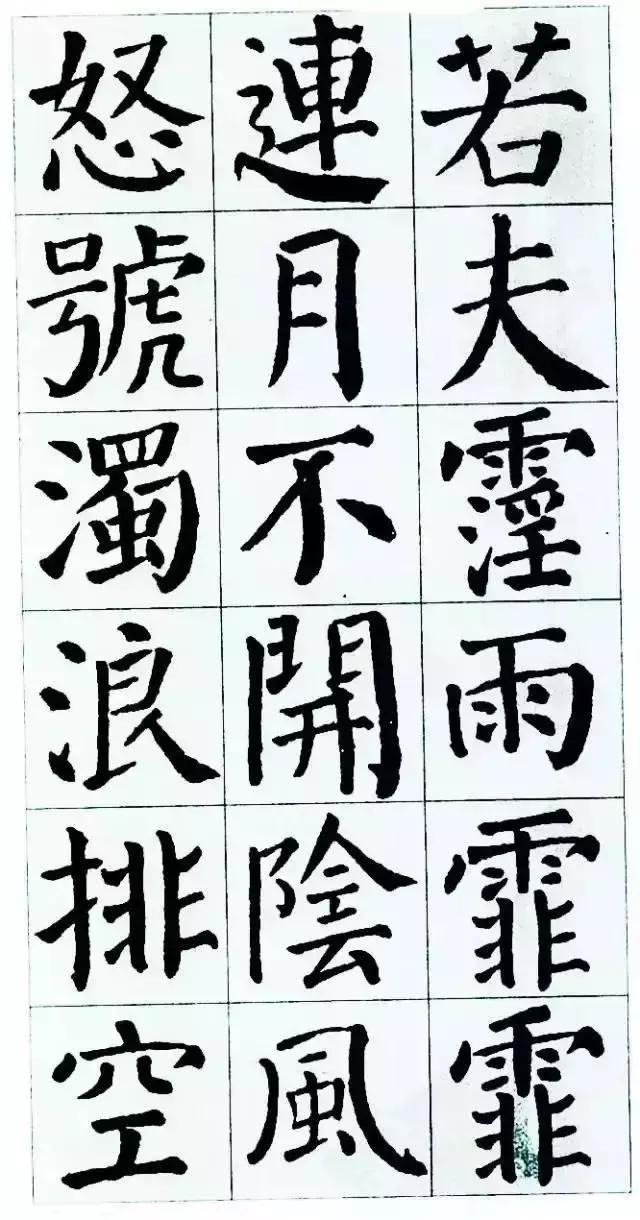 若夫霪雨霏霏
連月不開陰風
怒號濁浪排空